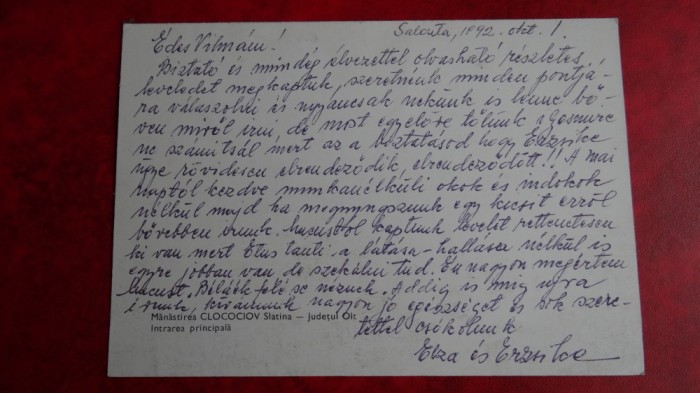 Salcuta, 1992. okt. 1.
Édes Vilmám!
Biztató és mindég élvezettel olvasható részletes
leveledet megkaptuk, szeretnénk minden pontjá-
ra válaszolni és ugyancsak nekünk is lenne bő-
ven miről írni, de most egyelőre tőlünk
ne számítsál mert az a biztatásod hogy Erzsike
ügye rövidesen elrendeződik, elrendeződött!! A mai
naptól kezdve munkanélküli okok és indokok
nélkül majd ha megnyugszunk egy kicsit erről
bővebben írunk. kaptunk levelet rettenetesen
ki van mert Etus tanti a látása-hallása nélkül is
egyre jobban van de szekálni tud. Én nagyon megértem
se néznek. Addig is míg újra
írunk, kívánunk nagyon jó egészséget és sok szere-
Mănăstirea CLOCOCIOV Slatina — Județul Olt
Intrarea principală
tettel csókolunk
Elza és Erzsike